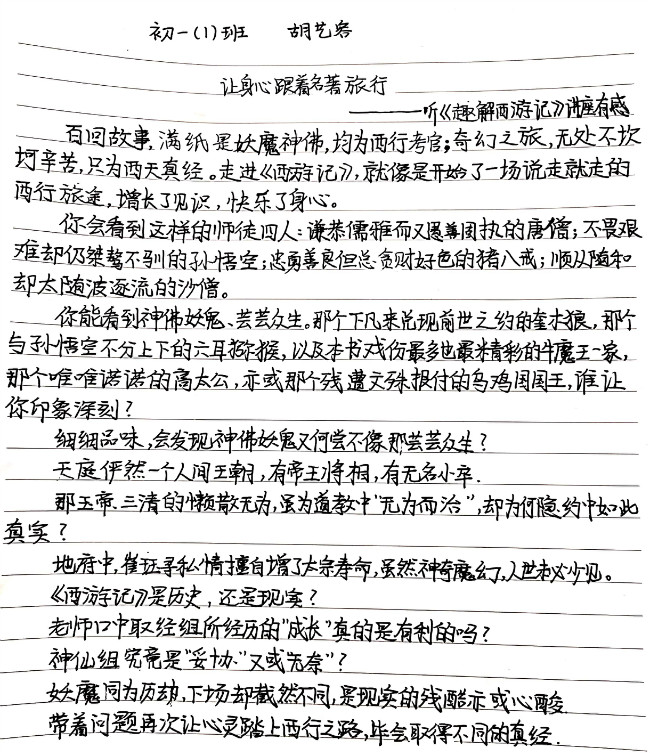 初一(1)班 胡艺客
让身心跟着名著旅行
———听《趣解西游记》讲座有感
百回故事,满纸是妖魔神佛,均为西行考官;奇幻之旅,无处不坎
坷辛苦,只为西天真经。走进《西游记》,就像是开始了一场说走就走的
西行旅途,增长了见识,快乐了身心。
你会看到这样的师徒四人:谦恭儒雅而又愚善固执的唐僧;不畏艰
难却仍桀骜不驯的孙悟空;忠勇善良但总贪财好色的猪八戒;顺从随和
却太随波逐流的沙僧。
你能看到神佛妖鬼、芸芸众生。那个下凡来兑现前世之约的奎木狼,那个
与孙悟空不分上下的六耳猕猴,以及本书戏份最多也最精彩的牛魔王一家,
那个唯唯诺诺的高太公,亦或那个残遭文殊报付的乌鸡国国王,谁让
你印象深刻?
细细品味,会发现神佛妖鬼又何尝不像那芸芸众生?
天庭俨然一个人间王朝,有帝王将相,有无名小卒.
那玉帝、三清的懒散无为,虽为道教中“无为而治”,却为何隐约中如此
真实?
地府中,崔珏寻私情擅自增了太宗寿命,虽然神奇魔幻,人世却必少见。
《西游记》是历史,还是现实?
老师口中取经组所经历的“成长”真的是有利的吗?
神仙组究竟是“妥协”又或“无奈”?
妖魔同为历劫,下场却截然不同,是现实的残酷亦或心酸
带着问题再次让心灵踏上西行之路,毕会取得不同的真经.